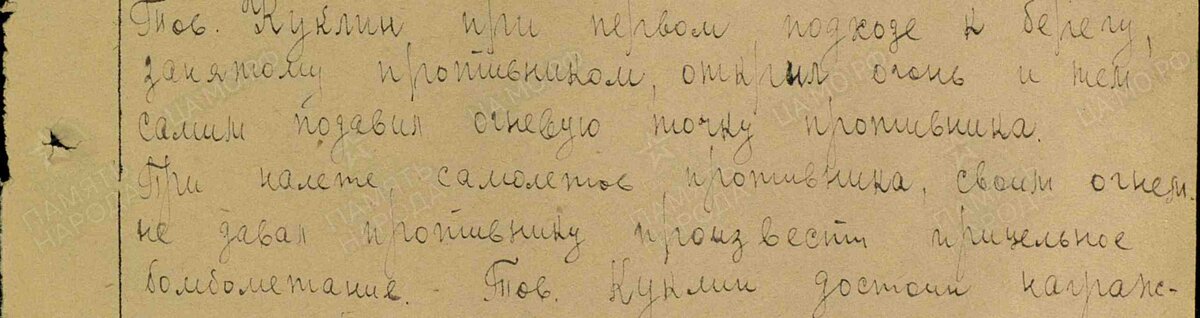 Тов. Куклин при первом подходе к берегу,
занятому противником, открыл огонь и тем
самим подавил огневую точку противника.
При налете самолетов противника, своим огнем
не давал противнику произвести прицельное
бомбометание. Тов. Куклин достоин награж-